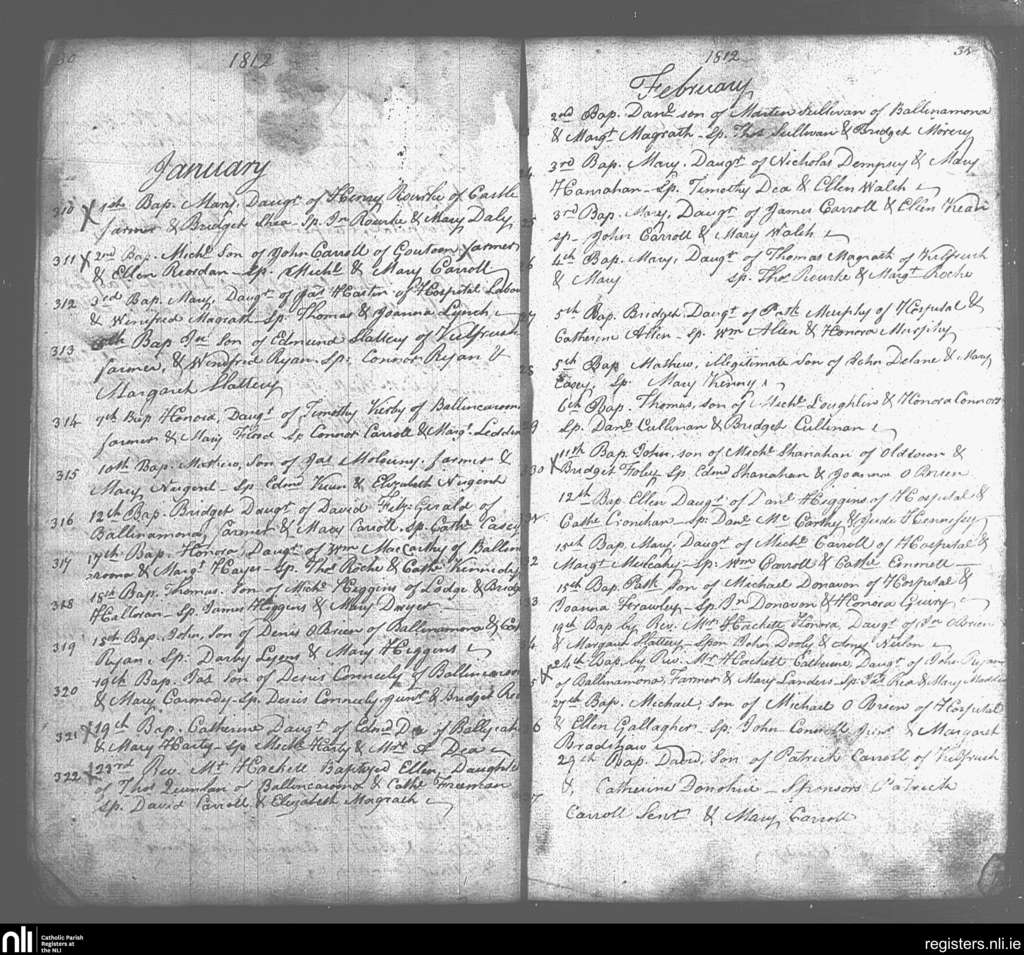 30
1812
January
310 X 1st Bap. Mary, Daugt. of Henry Rourke of Castle
farmer & Bridget Shea Sp. Jn Rourke & Mary Daly
311 X 2nd Bap. Michl. Son of John Carroll of farmer
& Ellen Reordan - Sp. Michl. & Mary Carroll
312 3rd Bap. Mary, Daugt. of Jas Hartin of Hospital Labou
& Winifred Magrath - Sp. Thomas & Joanna Lynch
313 Bap Jno Son of Edmund Slattery of Kilfrush
farmer, & Ryan - Sp. Connor Ryan &
Margaret Slattery
314 9th Bap Honora, Daugt. of Timothy Kirby of Ballincaroon
farmer & Mary Sp Connor Carroll & Margt.
315 10th Bap. Mathew, Son of Jas farmer &
Mary Nugent - Sp Edmd & Elizabeth Nugent
316 12th Bap. Bridget Daugt of David Fitz Gerald of
Ballinamona, farmer & Mary Carroll. Sp. Cathe Casey
317 17th Bap. Honora, Daugt. of Wm MacCarthy of Ballin
& Margt Hayes - Sp. Thos Roche & Cathe Kennedy
318 15th Bap. Thomas. Son of Michl Higgins of Lodge & Bridg
Halloran - Sp James Higgins & Mary Dwyer
319 15th Bap. John, Son of Denis OBrien of Ballinamona &
Ryan, Sp. Darby Lyons & Mary Higgins
320 19th Bap. Jas Son of Denis Conneely of Ballincaroon
& Mary Carmody - Sp. Denis Conneely junr & Bridget
321 X 19th Bap. Catherine Daugt. of Edmd Dea of
& Mary Harty - Sp Michl Harty & Mrs Dea
322 X 23rd Rev. Mr Hackett Baptized Ellen, Daughte
of Thos Quinlan of Ballincaroona & Cathe Freeman
Sp. David Carroll & Elizabeth Magrath
1812
February
2nd Bap. Danl. son of Martin Sullivan of Ballinamona
& Margt Magrath - Sp. Thos Sullivan & Bridget
3rd Bap. Mary, Daugt of Nicholas Dempsey & Mary
Hanrahan - Sp. Timothy Dea & Ellen Walsh
3rd Bap. Mary, Daugt. of James Carroll & Ellen
Sp - John Carroll & Mary Walsh
4th Bap. Mary, Daugt. of Thomas Magrath of Kilfrush
& Mary Sp. Thos Rourke & Margt Roche
5th Bap. Bridget Daugt of Patk Murphy of Hospital &
Catherine Allen - Sp. Wm Allen & Honora Murphy
5th Bap Mathew, illegitimate son of John Delane & Mary
Casey, Sp. Mary Kenny
6th Bap. Thomas, son of Michl Loughlin & Honora Connors
Sp. Danl Cullinan & Bridget Cullinan
11th Bap. John, son of Michl Shanahan of Oldtown &
Bridget Foley Sp Edmd Shanahan & Joanna O Brien
12th Bap Ellen Daugt of Danl Higgins of Hospital &
Cathe Cronehan - Sp. Danl Mc Carthy & Jude Hennessy
15th Bap. Mary, Daugt. of Michl Carroll of Hospital &
Margt Mulcahy - Sp. Wm Carroll & Cathe
15th Bap. Patk Son of Michael Donavan of Hospital &
Joanna Frawley - Sp. Jn Donovan & Honora
19th Bap by Rev. Mr Hackett Honora, Daugt. of Jn OBrien
& Margaret Slattery - Spon John & Amy
24th Bap. by Rev. Mr Hackett Catherine, Daugt. of John Ryan
of Ballinamona, Farmer & Mary Landers - Sp. & Mary Madden
27th Bap. Michael, son of Michael O Brien of Hospital
& Ellen Gallagher - Sp. John Connell Junr & Margaret
Bradshaw
29th Bap. David, Son of Patrick Carroll of Kilfrush
& Catherine Donohue - Sponsors Patrick
Carroll Senr & Mary Carroll
nli
Catholic Parish
Registers at
the NLI
registers.nli.ie